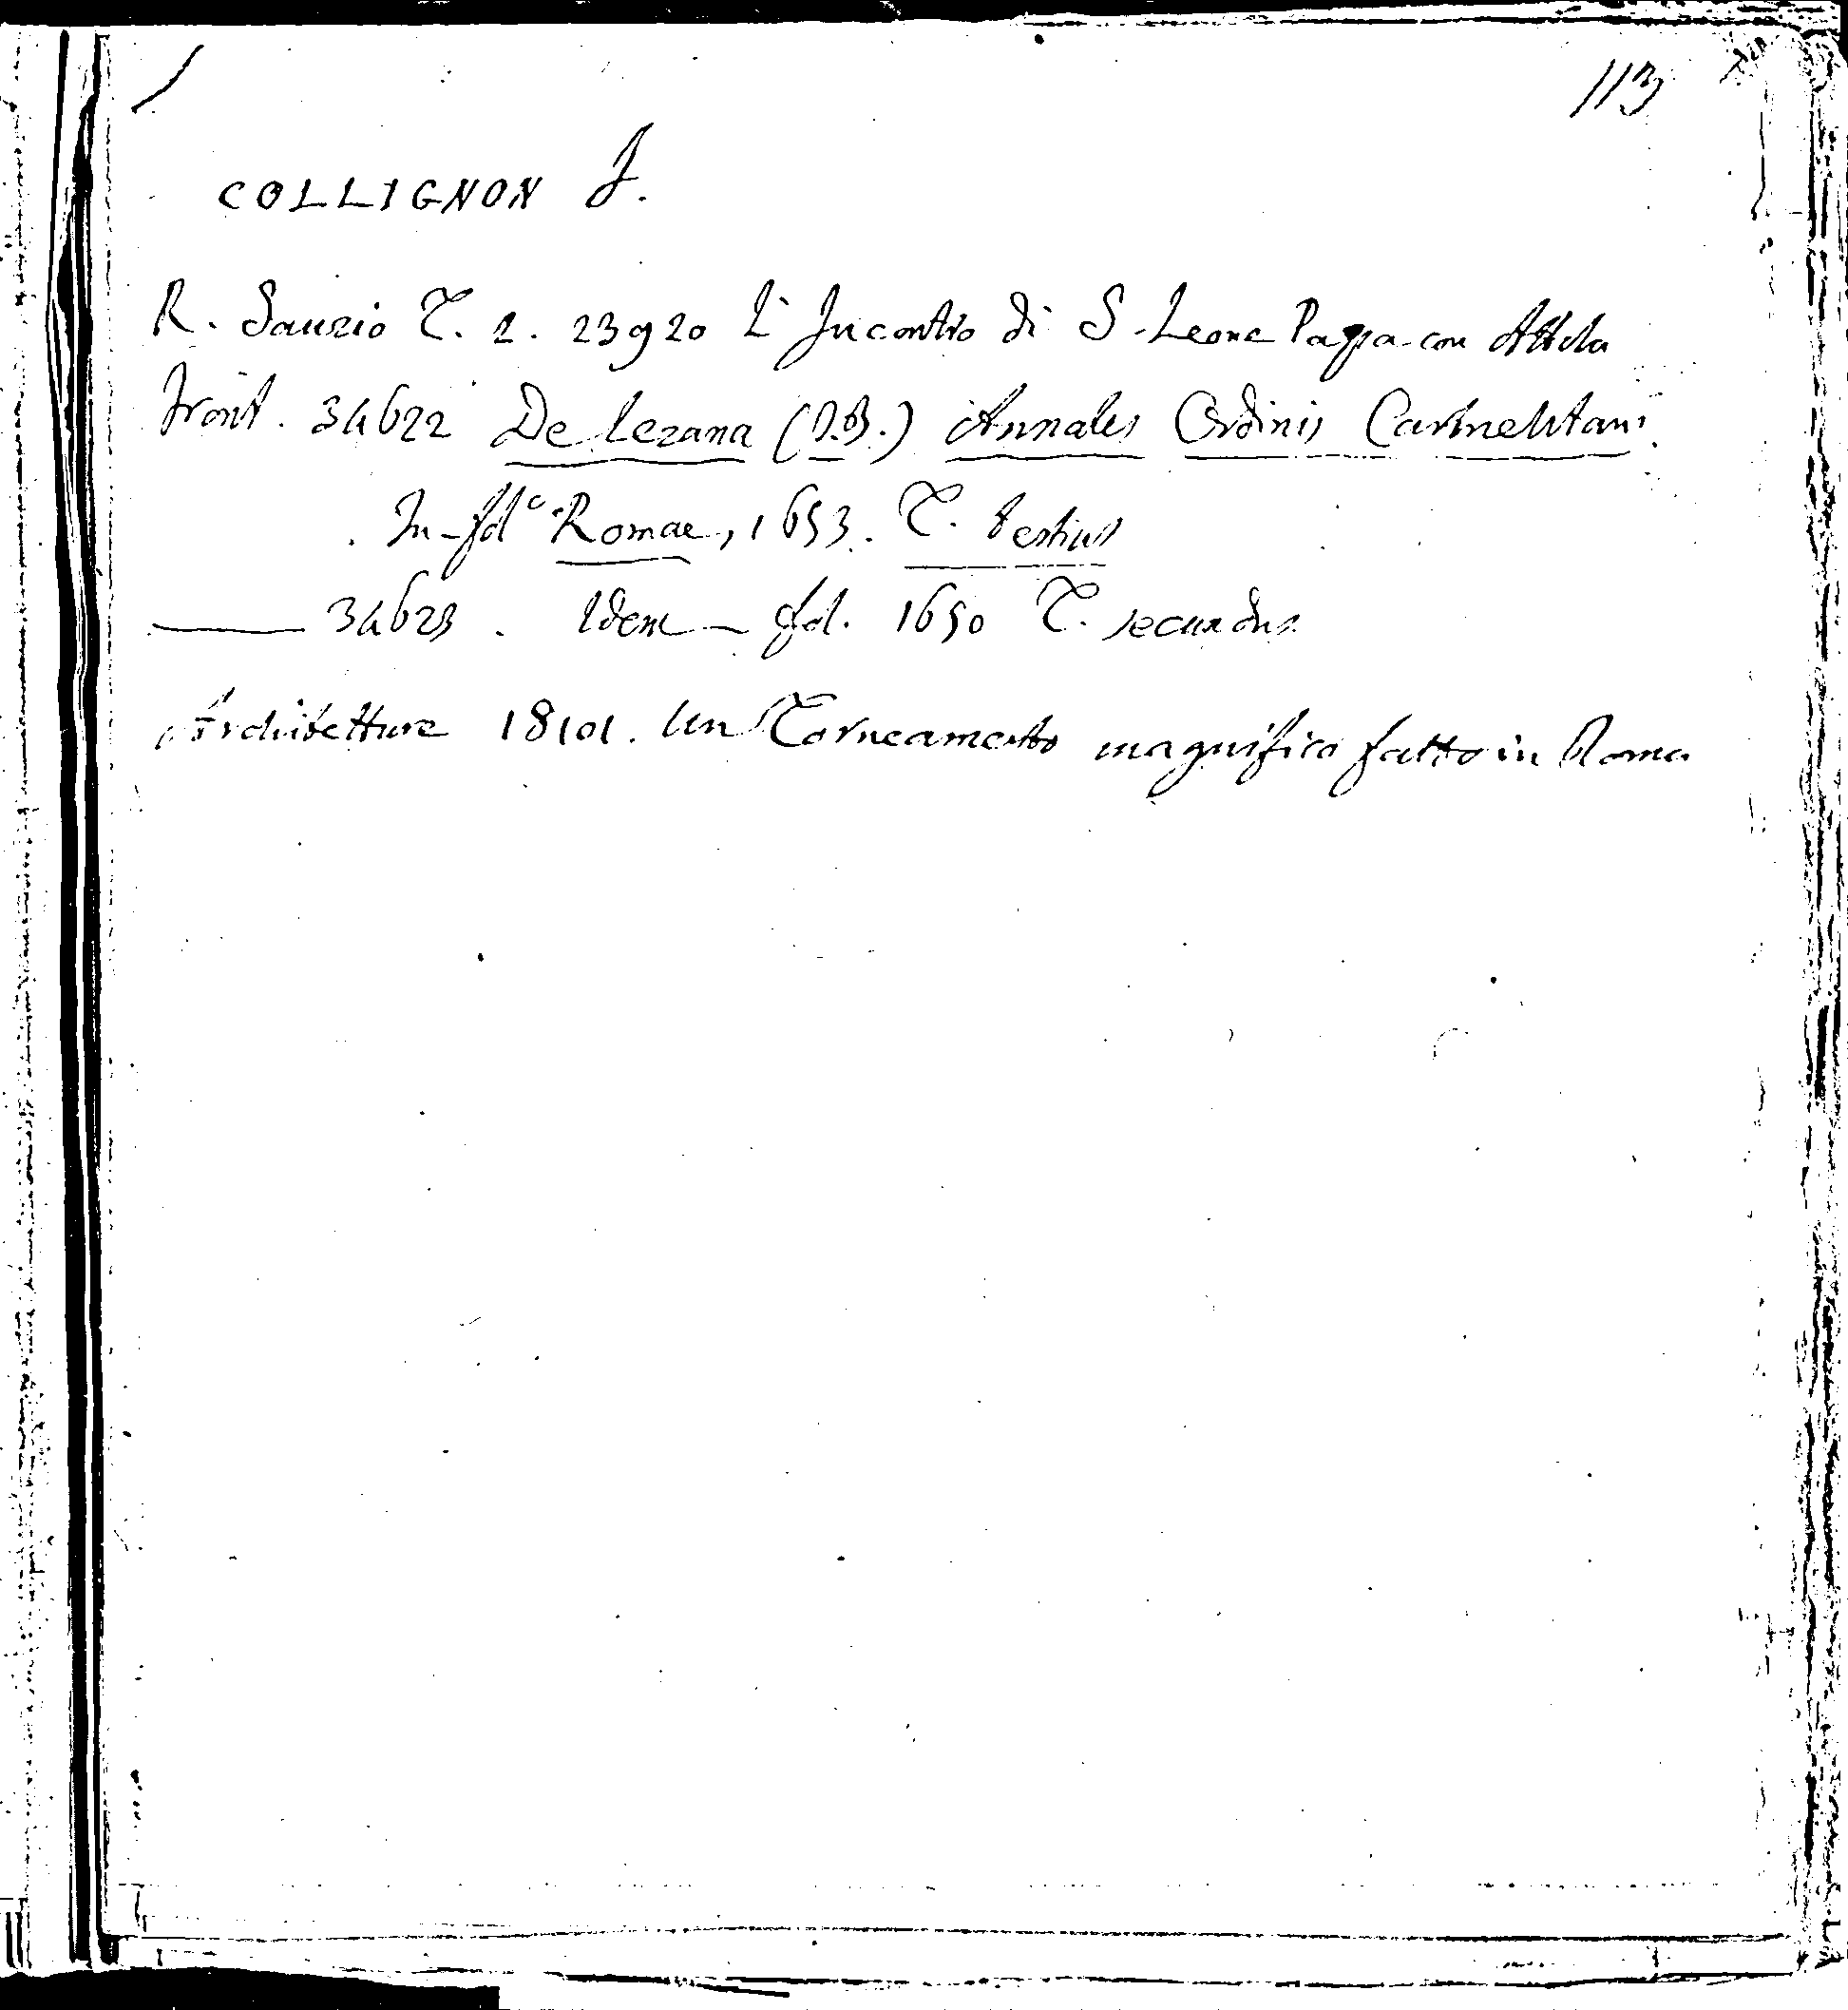 113
COLLIGNON J.
R. Sanzio T. 2. 23920 L'Incontro di S. Leone Papa con Attila
Front. 34622 De Lezana (J.B.) Annales Ordinis Carmelitani
In-folº Romae, 1653. T. tertius
—— 34623. Idem — fol. 1650 T. secundus
Architetture 18101. Un Torneamento magnifico fatto in Roma